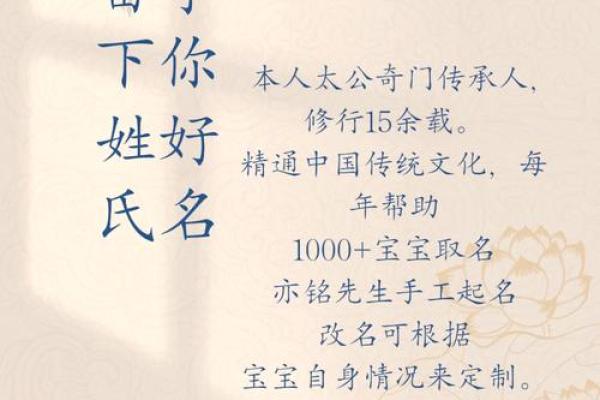 留下姓氏
予你好名
本人太公奇门传承人,
修行15余载。
精通中国传统文化, 每
年帮助
1000+宝宝取名
亦铭先生手工起名
改名可根据
宝宝自身情况来定制。